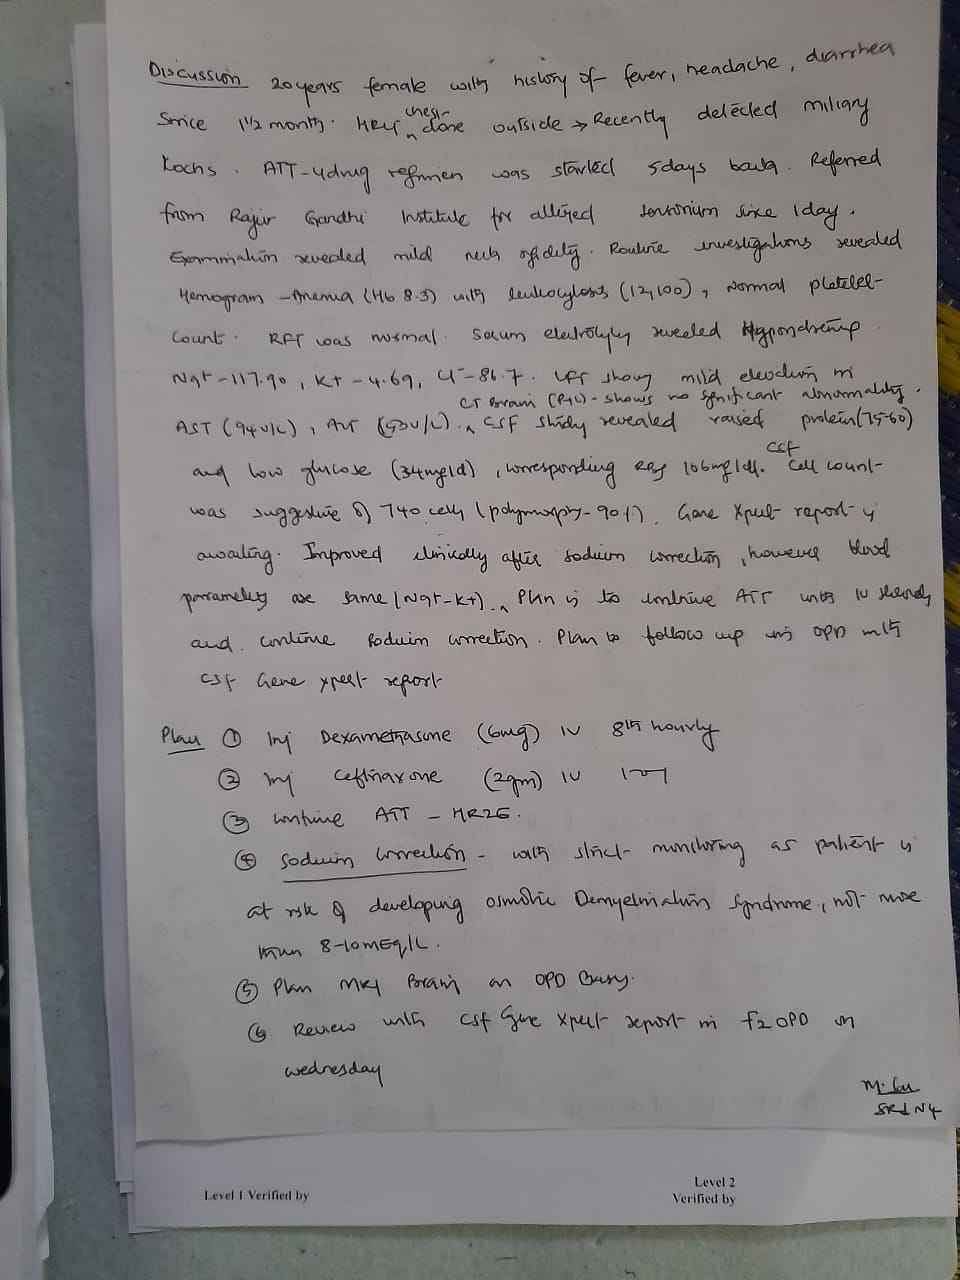 Discussion 20 years female with history of fever, headache, diarrhea
Since 1 1/2 month. HRCT chest done outside → Recently detected miliary
Kochs. ATT-4drug regimen was started 5days back. Referred
from Rajiv Gandhi Institute for altered sensorium since 1day.
Examination revealed mild neck rigidity. Routine investigations revealed
Hemogram - Anemia (Hb 8.3) with leukocytosis (12,100), Normal platelet
count. RFT was normal. Serum electrolytes revealed Hyponatremia
Na+ - 117.90, K+ - 4.69, Cl- - 86.7. LFT shows mild elevation in
CT Brain (P+C) - shows no significant abnormality.
AST (94U/L), ALT (53U/L). CSF study revealed raised protein (75.60)
and low glucose (34mg/dl), corresponding RBS 106mg/dl. CSF Cell count
was suggestive of 740 cells (polymorphs - 90%). Gene Xpert report is
awaiting. Improved clinically after sodium correction, however blood
parameters are same (Na+ - K+). Plan is to continue ATT with IV steroids
and continue Sodium correction. Plan to follow up in OPD with
CSF Gene xpert report
Plan ① Inj Dexamethasone (6mg) IV 8th hourly
② Inj Ceftriaxone (2gm) IV
③ Continue ATT - HRZE.
④ Sodium Correction - with strict monitoring as patient is
at risk of developing osmotic Demyelination Syndrome, not more
than 8-10mEq/L.
⑤ Plan MRI Brain on OPD Basis.
⑥ Review with CSF Gene Xpert report in F2 OPD on
wednesday
Level 1 Verified by
Level 2
Verified by